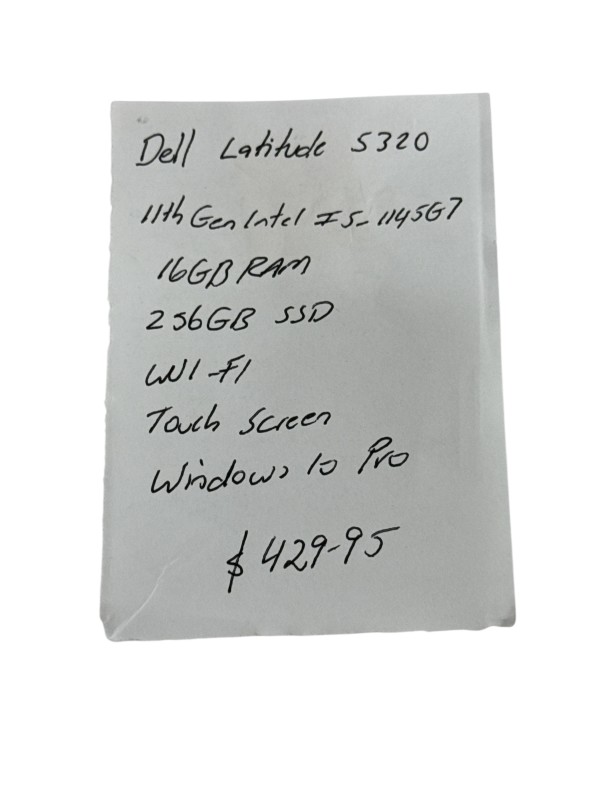 Dell Latitude 5320
11th Gen Intel I5-1145G7
16GB RAM
256GB SSD
WI-FI
Touch Screen
Windows 10 Pro
$429-95